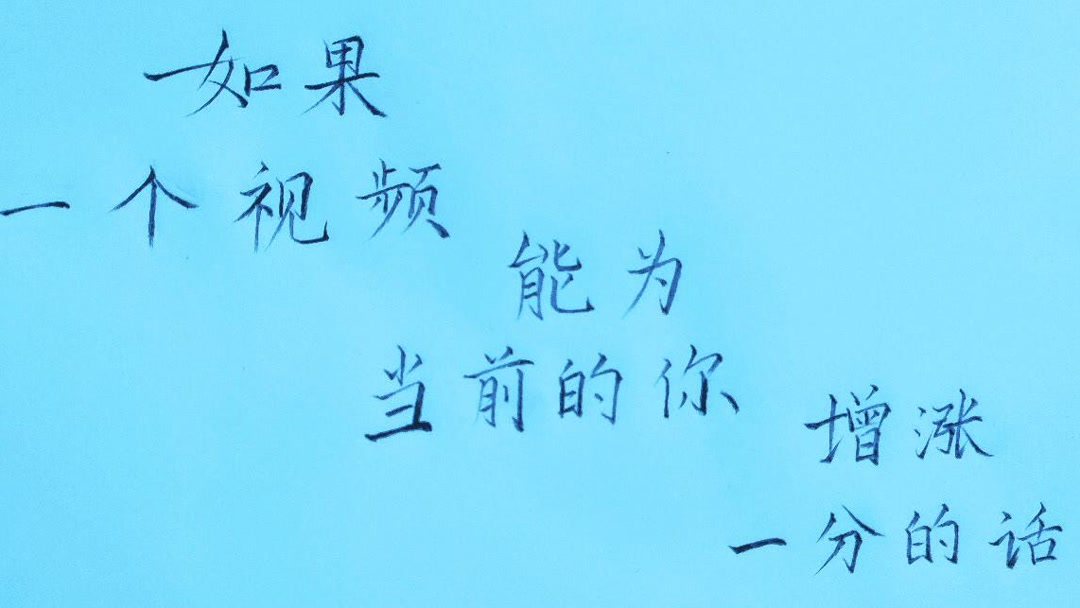 如果
一个视频
能为
当前的你
增涨
一分的话